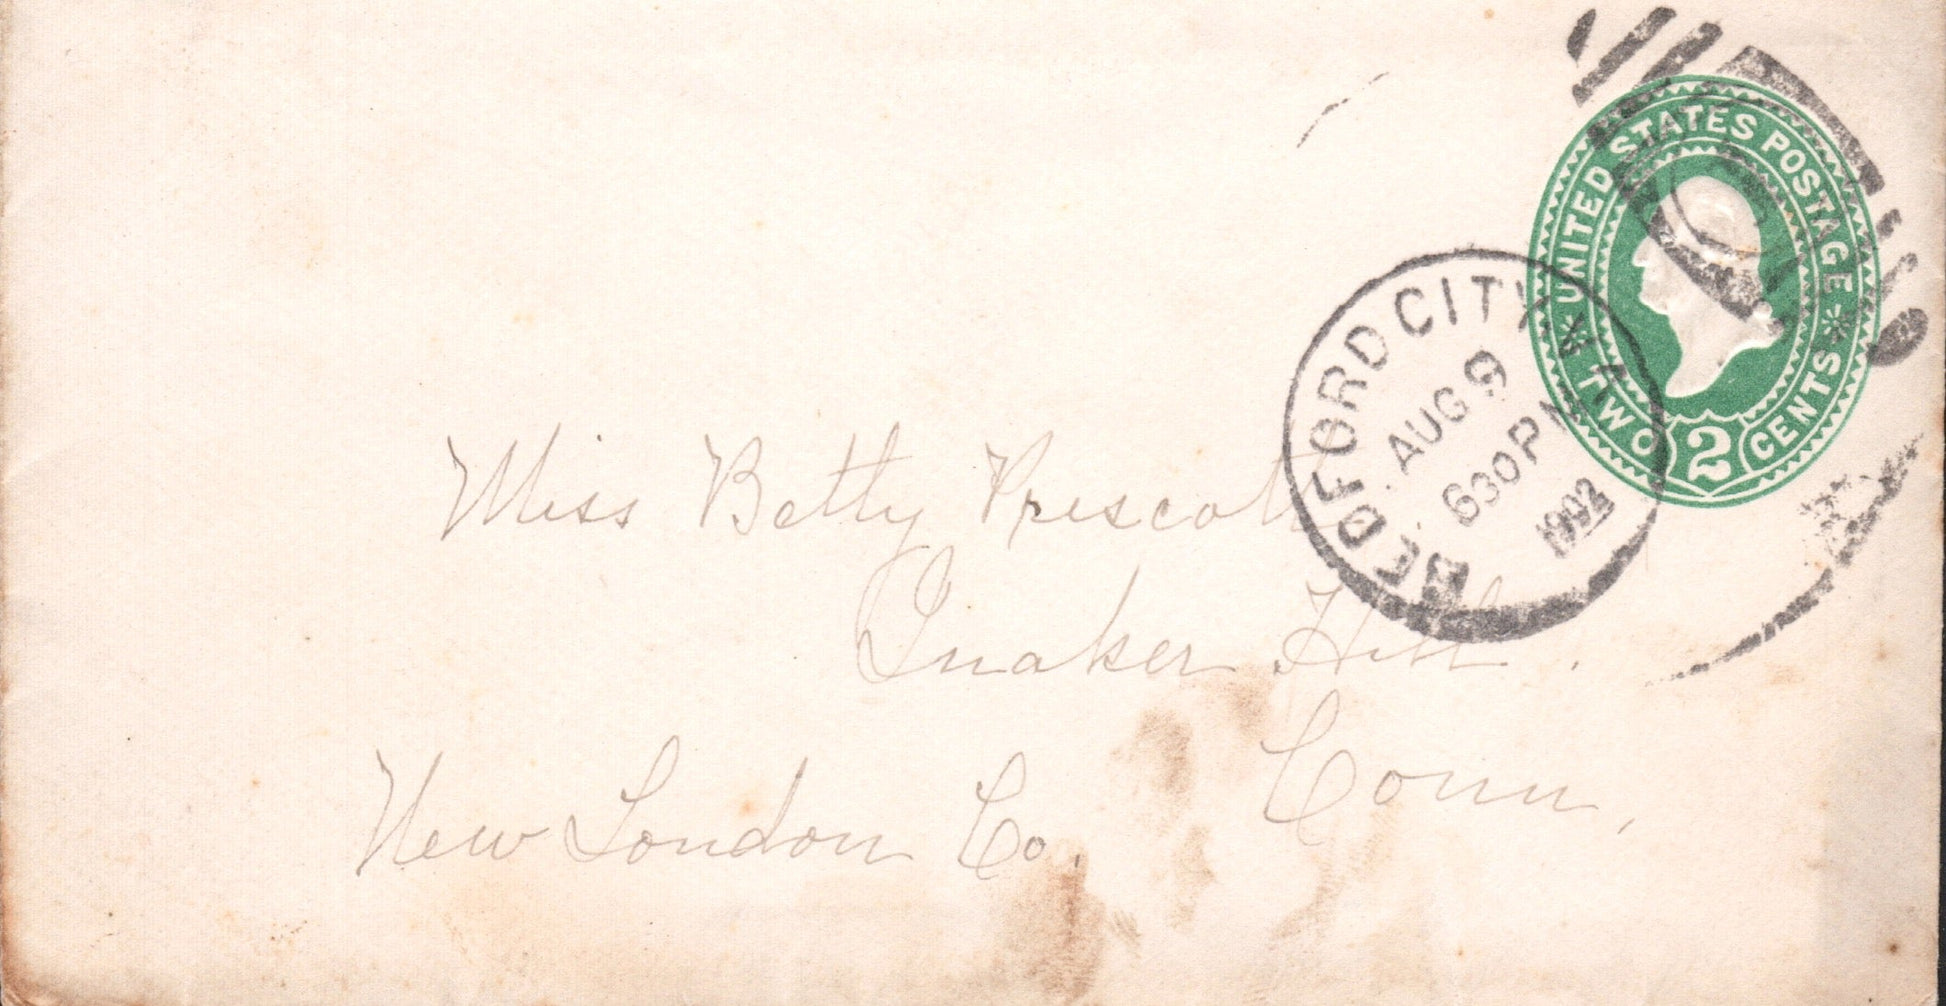 UNITED STATES POSTAGE
TWO 2 CENTS
BEDFORD CITY VA
AUG 9
630 P M
Miss Betty Prescott
Quaker Hill.
New London Co. Conn,